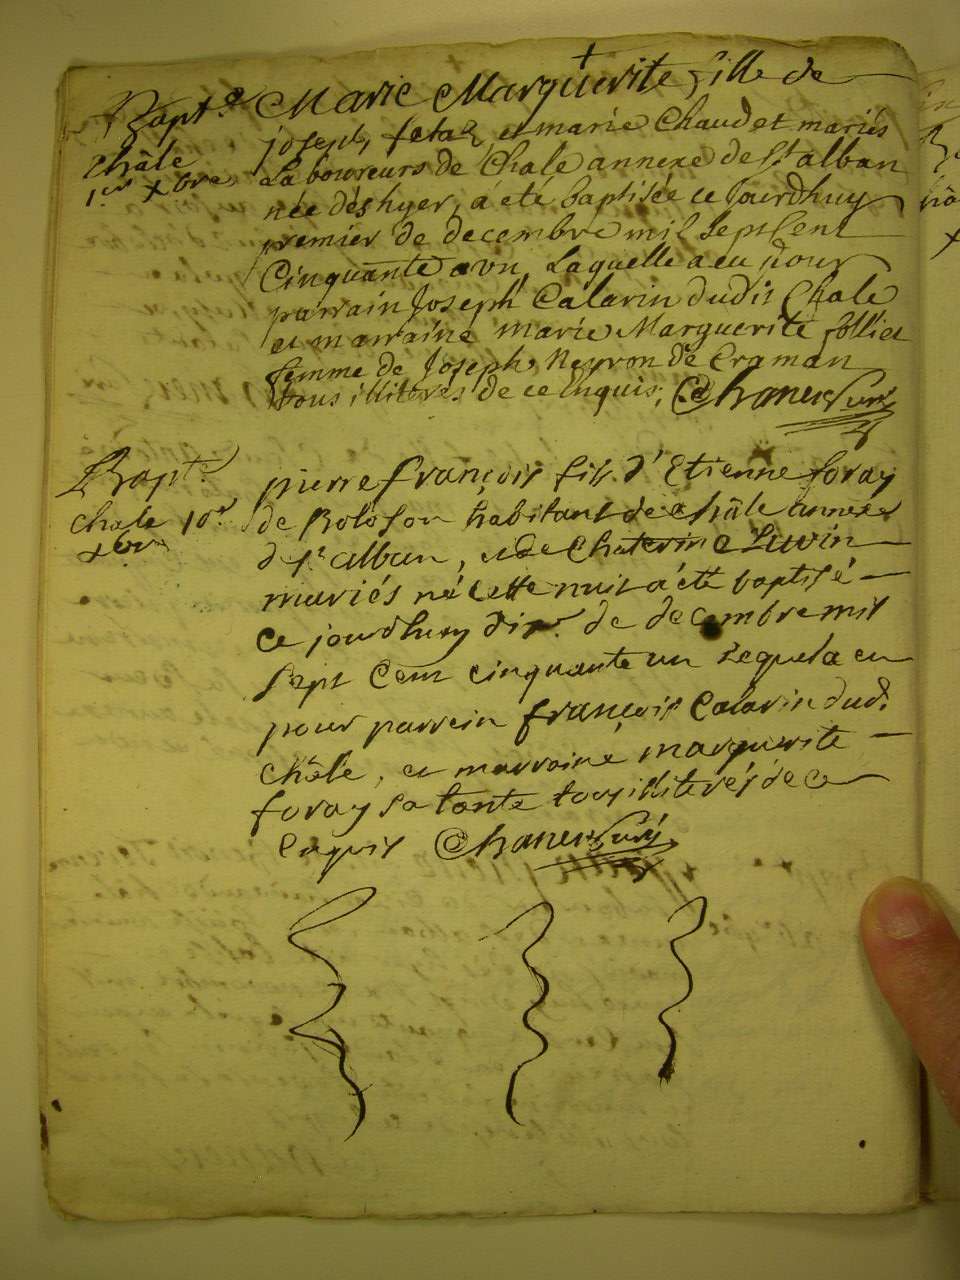 Bapt.e Marie Marguerite fille de
Châle joseph fetaz et marie Chaudet mariés
1.er Xbre Laboureurs de Chale annexe de St alban
née dés hyer, á été baptisée ce jourdhuy
premier de decembre mil sept Cent
Cinquante et un, Laquelle a eu pour
parrain Joseph Calarin dudit Chale
et marraine marie Marguerite folliet
femme de Joseph Neyron de Craman
tous illiterés de ce enquis,
Bapt.e pierre françois fils d'Etienne foray
chale 10.r de habitant de châle annexe
Xbre de St alban, et de Chaterine Luvin
mariés né cette nuit á été baptisé
ce jourdhuy dix.e de decembre mil
sept Cent cinquante un Lequel a eu
pour parrein françois Calarin dud.
châle, et marraine marguerite
foray sa tante tous illiterés de ce
enquis